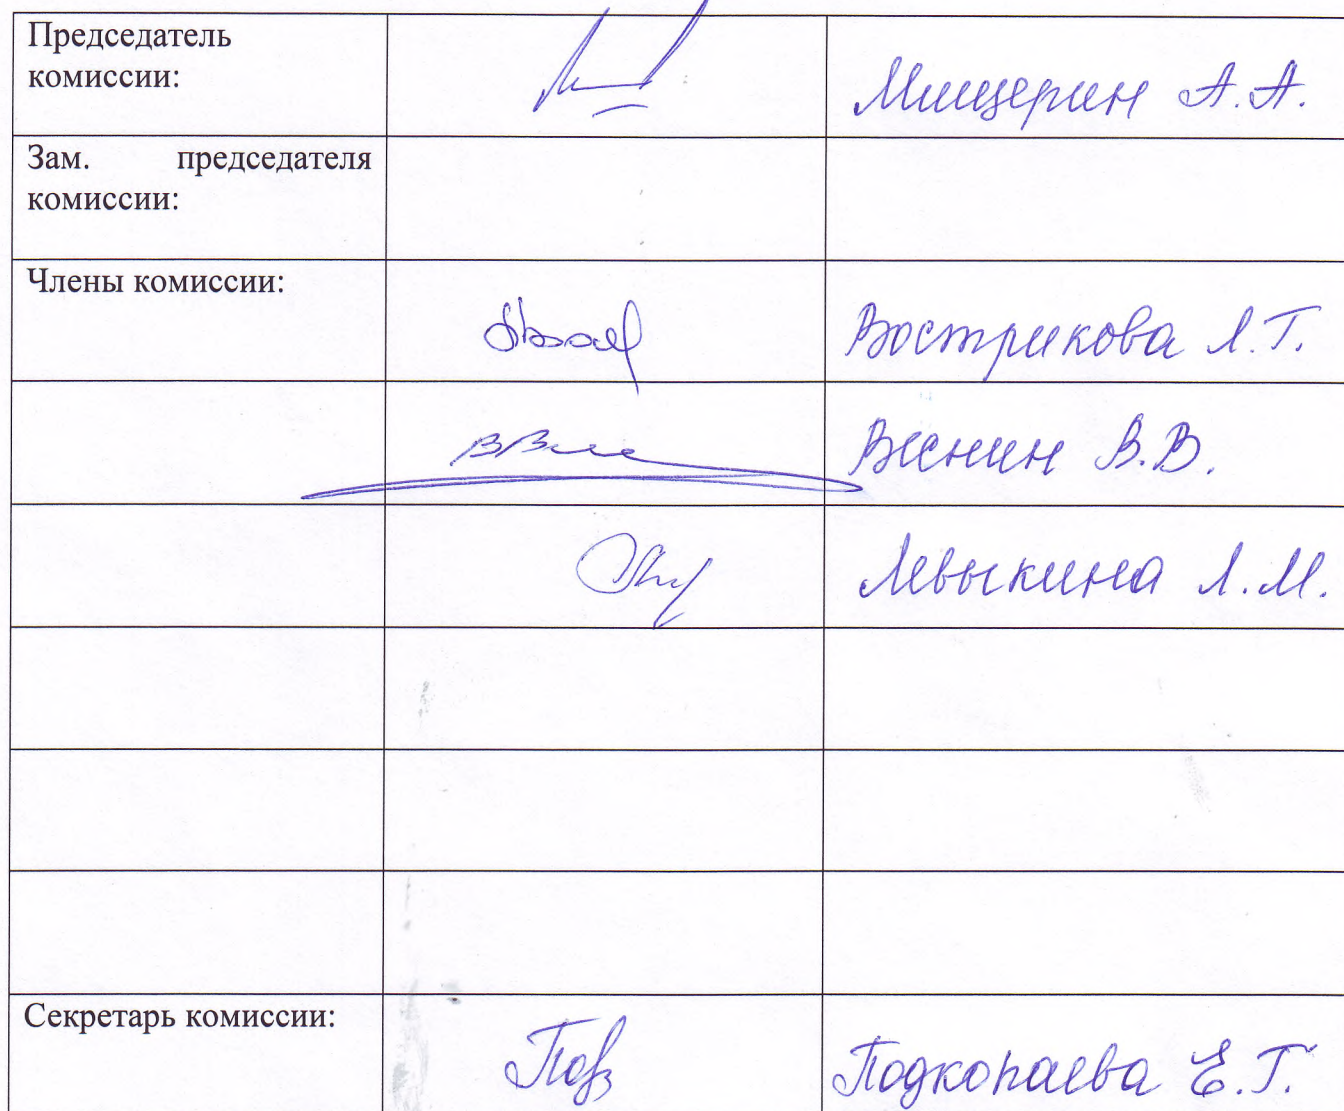 Председатель
комиссии:
Мищерин А.А.
Зам. председателя
комиссии:
Члены комиссии:
Вострикова Л.Г.
Веснин В.В.
Левыкина Л.М.
Секретарь комиссии:
Подкопаева Е.Г.